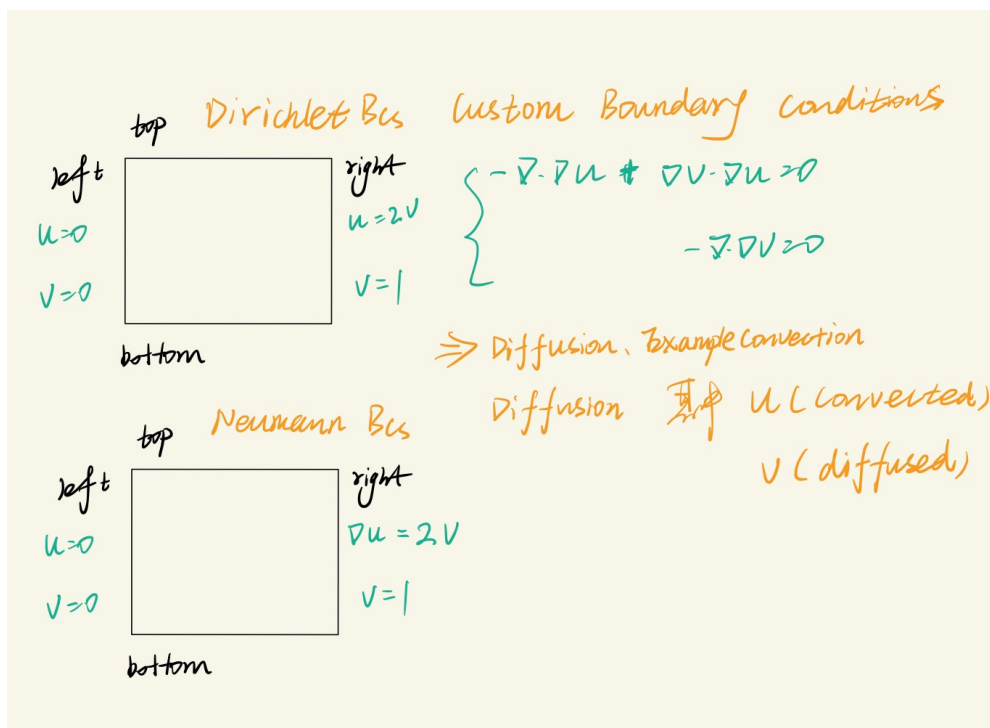 Dirichlet Bcs Custom Boundary Conditions
top
left
right
u=0
u=2v
v=0
v=1
bottom
-∇·∇u + ∇v·∇u=0
-∇·∇v=0
⇒ Diffusion、ExampleConvection
Diffusion 其中 u(converted)
v(diffused)
Neumann Bcs
top
left
right
u=0
∇u=2v
v=0
v=1
bottom